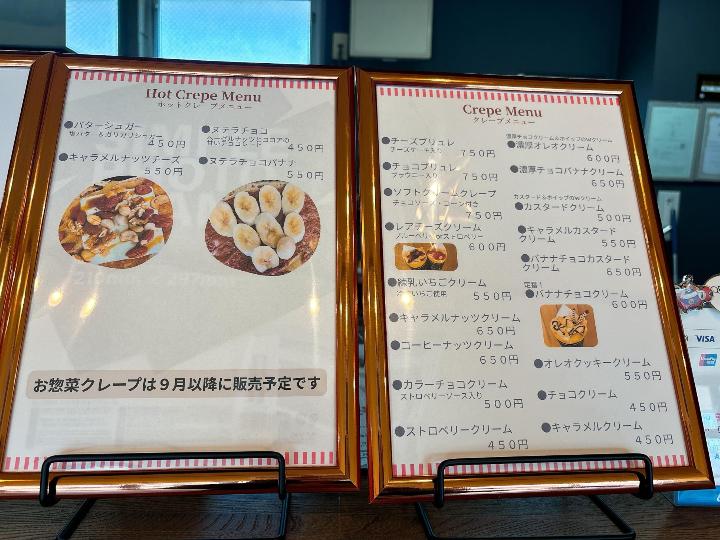 Hot Crepe Menu
ホットクレープメニュー
●バターシュガー
塩バター&ガリガリシュガー
450円
●キャラメルナッツチーズ
550円
●ヌテラチョコ
ヘーゼルナッツとココアの
甘いチョコ
450円
●ヌテラチョコバナナ
550円
お惣菜クレープは9月以降に販売予定です
Crepe Menu
クレープメニュー
●チーズブリュレ
チーズケーキ入り
750円
●チョコブリュレ
ブラウニー入り
750円
●ソフトクリームクレープ
チョコソース・コーン付き
750円
●レアチーズクリーム
ブルーベリーorストロベリー
600円
●練乳いちごクリーム
いちご使用
550円
●キャラメルナッツクリーム
650円
●コーヒーナッツクリーム
650円
●カラーチョコクリーム
ストロベリーソース入り
500円
●ストロベリークリーム
450円
濃厚チョコクリーム&ホイップのWクリーム
●濃厚オレオクリーム
600円
●濃厚チョコバナナクリーム
650円
カスタード&ホイップのWクリーム
●カスタードクリーム
500円
●キャラメルカスタード
クリーム
550円
●バナナチョコカスタード
クリーム
650円
定番!
●バナナチョコクリーム
600円
●オレオクッキークリーム
550円
●チョコクリーム
450円
●キャラメルクリーム
450円
VISA